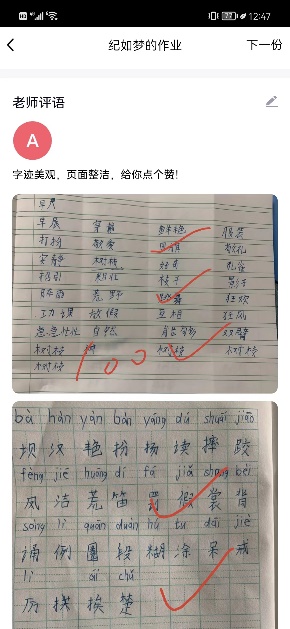 12:47
纪如梦的作业
下一份
老师评语
A
字迹美观，页面整洁，给你点个赞！
早晨
早晨 穿戴 鲜艳 服装
打扮 敬爱 国旗 敬礼
安静 树枝 好奇 孔雀
招引 敬礼 枝头 影子
荒野 狂欢
功课 放假 互相 狂风
急急忙忙 自然 双臂
树枝 树枝 树枝
树枝
100
bà hàn yàn bàn yáng dú shuāi jiāo
坝 汉 艳 扮 扬 读 摔 跤
fēng jié huāng dí fá jiǎ shang bèi
凤 洁 荒 笛 罚 假 裳 背
sòng lì quān duàn hú tu dāi jiè
诵 例 圈 段 糊 涂 呆 戒
lì ái chǔ
厉 挨 挨 楚